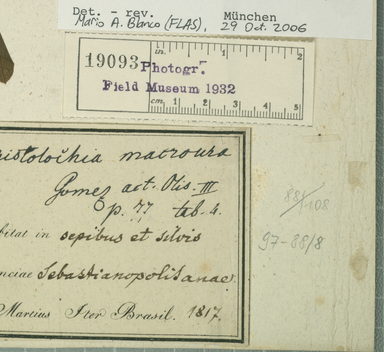 Det. - rev. München
Mario A. Blanco (FLAS), 29 Oct. 2006
in. 1 2
19093 Photogr.
Field Museum 1932
cm. 1 2 3 4 5
istolochia macroura
Gomez act. Olis. III
p. 77 tab. 4.
bitat in sepibus et silvis
nciae Sebastianopolitanae.
Martius Iter Brasil. 1817.
88/108
97-88/8